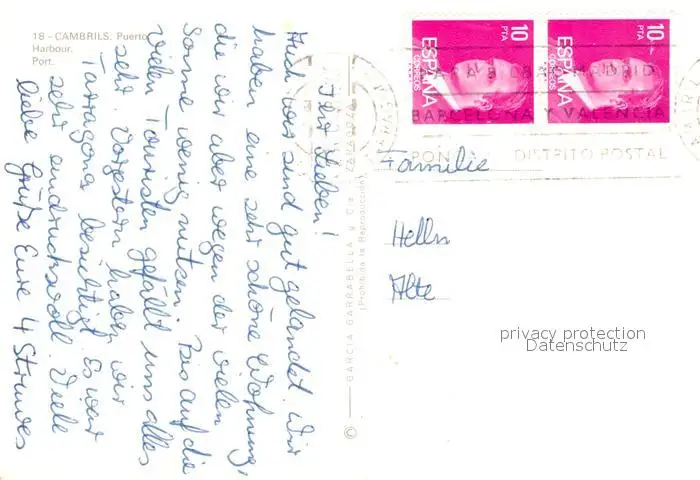 18 - CAMBRILS. Puerto
Harbour.
Port.
Ihr Lieben!
Auch wir sind gut gelandet. Wir
haben eine sehr schöne Wohnung,
die wir aber wegen der vielen
Sonne wenig nutzen. Bis auf die
vielen Touristen gefällt uns alles
sehr. Vorgestern haben wir
Tarragona besichtigt. Es war
sehr eindrucksvoll. Viele
liebe Grüße Eure 4 Struwes
© GARCIA GARRABELLA y Cia.
(Prohibida la Reproducción)
10 PTA
ESPAÑA
CORREOS
10 PTA
ESPAÑA
CORREOS
MADRID
BARCELONA Y VALENCIA
PON
DISTRITO POSTAL
Familie
Helln
Alte
privacy protection
Datenschutz